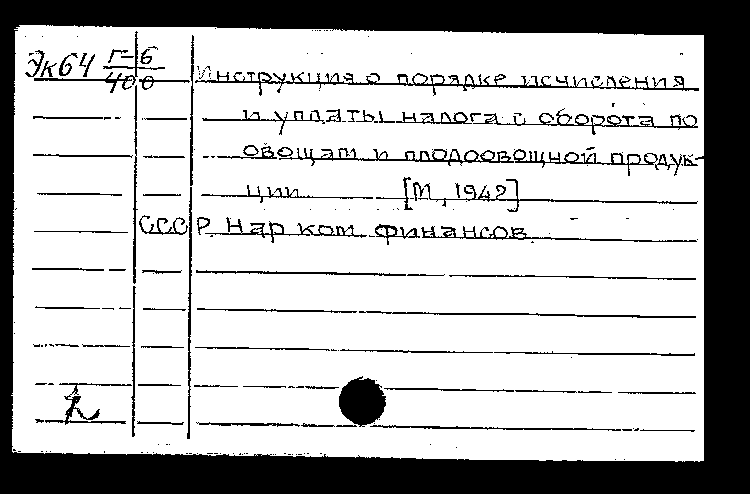 Эк64 Г-6
400
Инструкция о порядке исчисления
и уплаты налога с оборота по
овощам и плодоовощной продук-
ции [М., 1942]
СССР. Нар. ком. финансов.